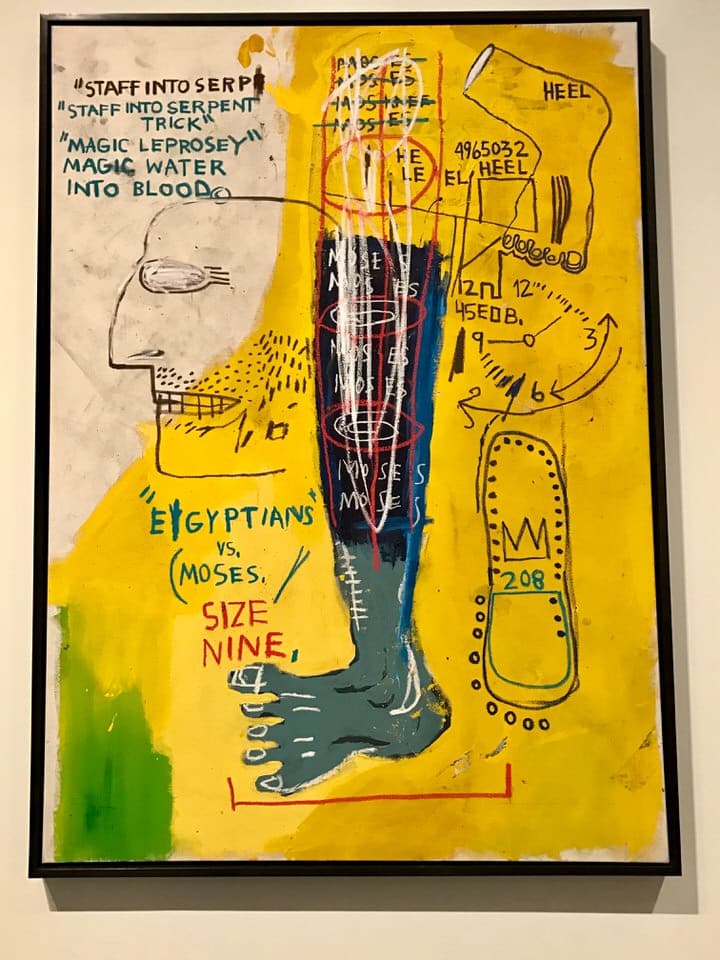 "STAFF INTO SERP
"STAFF INTO SERPENT
TRICK"
"MAGIC LEPROSEY"
MAGIC WATER
INTO BLOOD©
MOSES
MOSES
MOSES
HE
LE EL
4965032
HEEL
HEEL
12"
3
6
9
45EOB.
MOSE
MOS ES
MOS ES
MOS ES
MOSE S
MOSE S
"EYGYPTIANS"
VS.
(MOSES. /
SIZE
NINE,
208